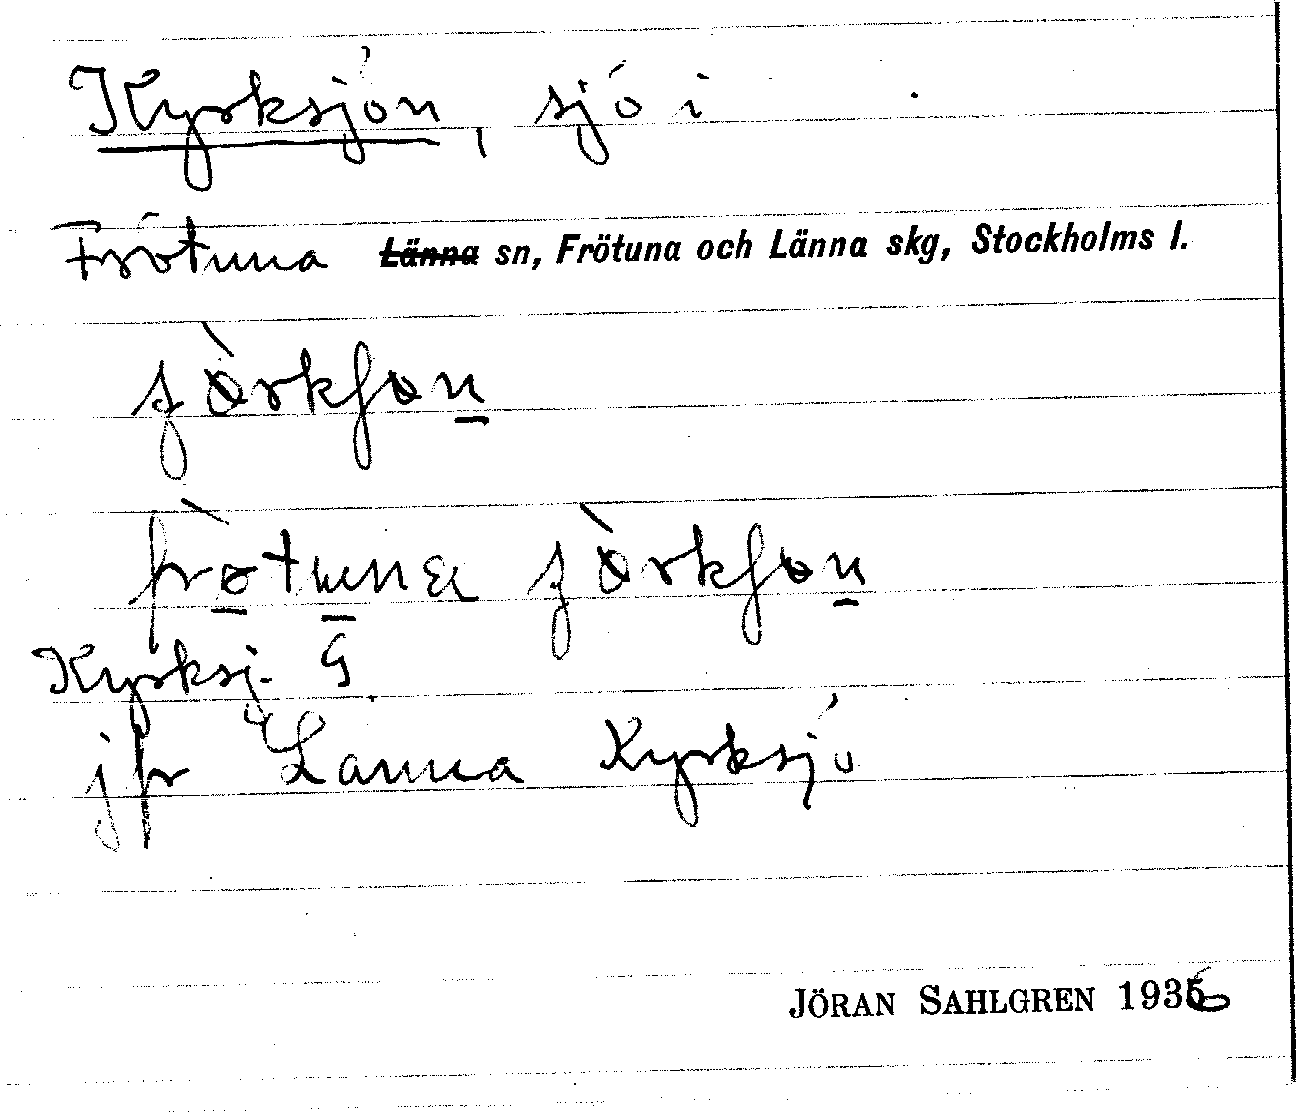 Kyrksjön, sjö i
Frötuna Länna sn, Frötuna och Länna skg, Stockholms l.
frötuna
Kyrksj. G
jfr Länna Kyrksjö
JÖRAN SAHLGREN 1936